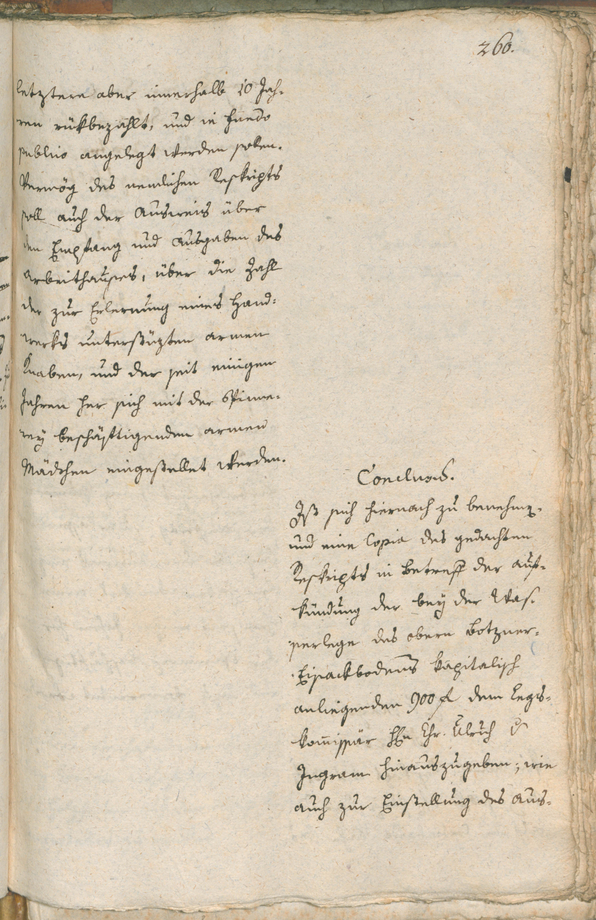 260.
letztere aber innerhalb 10 Jah-
ren rükbezahlt, und in fundo
publico angelegt werden sollen.
Vermög des nemlichen Reskripts
soll auch der Ausweis über
den Empfang und Ausgaben des
Arbeithauses, über die Zahl
der zur Erlernung eines Hand-
werks unterstüzten armen
Knaben, und der seit einigen
Jahren her sich mit der Spinne-
rey beschäftigenden armen
Mädchen eingestellet werden.
Conclusio.
Ist sich hiernach zu benehmen,
und eine Copia des gedachten
Reskripts in Betreff der Auf-
kündung der bey der Was-
serlege des obern Botzner-
Eisackbodens kapitalisch
anliegenden 900 f dem Legs-
kommissär Hhn Chr. Ulrich v
Ingram hinauszugeben, wie
auch zur Einstellung des Aus-